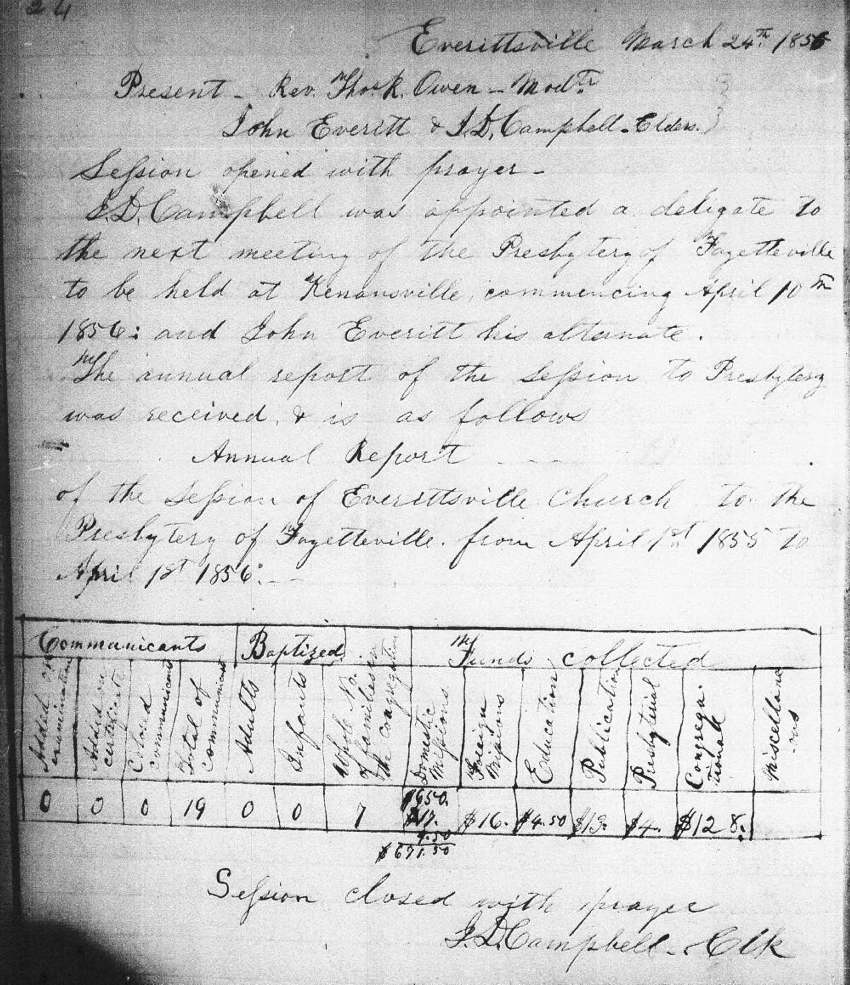 24
Everittsville March 24th 1856
Present - Rev. Thos. R. Owen - Modtr
John Everitt & J.D. Campbell - Elders.
Session opened with prayer -
J.D. Campbell was appointed a deligate to
the next meeting of the Presbytery of Fayetteville
to be held at Kenansville, commencing April 10th
1856: and John Everitt his alternate.
The annual report of the Session to Presbytery
was received, & is as follows
Annual Report
of the Session of Everittsville Church to the
Presbytery of Fayetteville from April 1st 1855 to
April 1st 1856.
Communicants Baptized Funds collected
Added on examination
Added on certificate
Colored communicants
Total of communicants
Adults
Infants
Whole No. of families in the congregation
Domestic Missions
Foreign Missions
Education
Publication
Presbyterial
Congregational
Miscellaneous
0 0 0 19 0 0 7 $650. $17. 4.50 $16. $4.50 $13. $4. $128.
$671.50
Session closed with prayer
J.D. Campbell - Clk